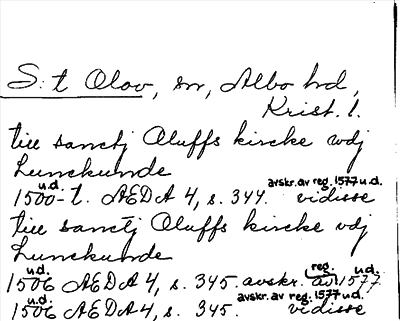 S:t Olov, sn, Albo hd,
Krist. l.
till sanctj Oluffs kircke vdj
Lunckunde
u.d. avskr. av reg. 1577 u.d.
1500-t. AEDA 4, s. 344. vidisse
till sanctj Oluffs kircke vdj
Lunckunde
u.d. reg. u.d.
1506 AEDA 4, s. 345. avskr. av 1577
u.d. avskr. av reg. 1577 u.d.
1506 AEDA 4, s. 345. vidisse